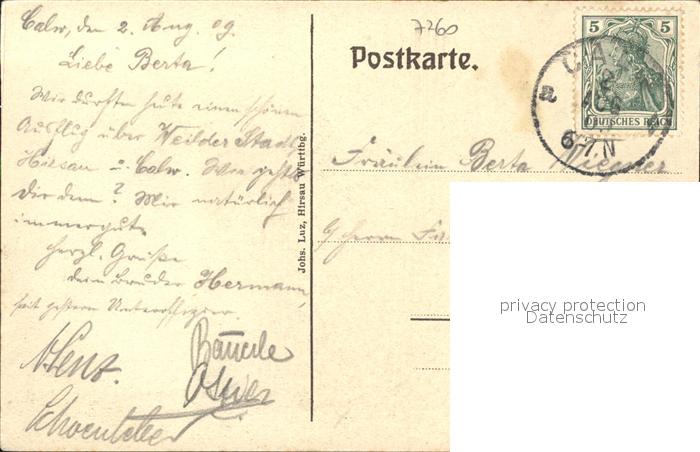 Calw, den 2. Aug. 09.
Liebe Berta!
Wir durften heute einen schönen
Ausflug über Weilder Stadt
Hirsau u. Calw. Wie geht's
Dir denn? Mir natürlich
immer gut.
Herzl. Grüße
dein Bruder Hermann,
seit gestern Unteroffizier.
Bäuerle
Lenz.
Johs. Luz, Hirsau Württbg.
7260
Postkarte.
5 5
DEUTSCHES REICH
CA
2
AUG
6-7.N
Fräulein Berta
Herrn
privacy protection
Datenschutz